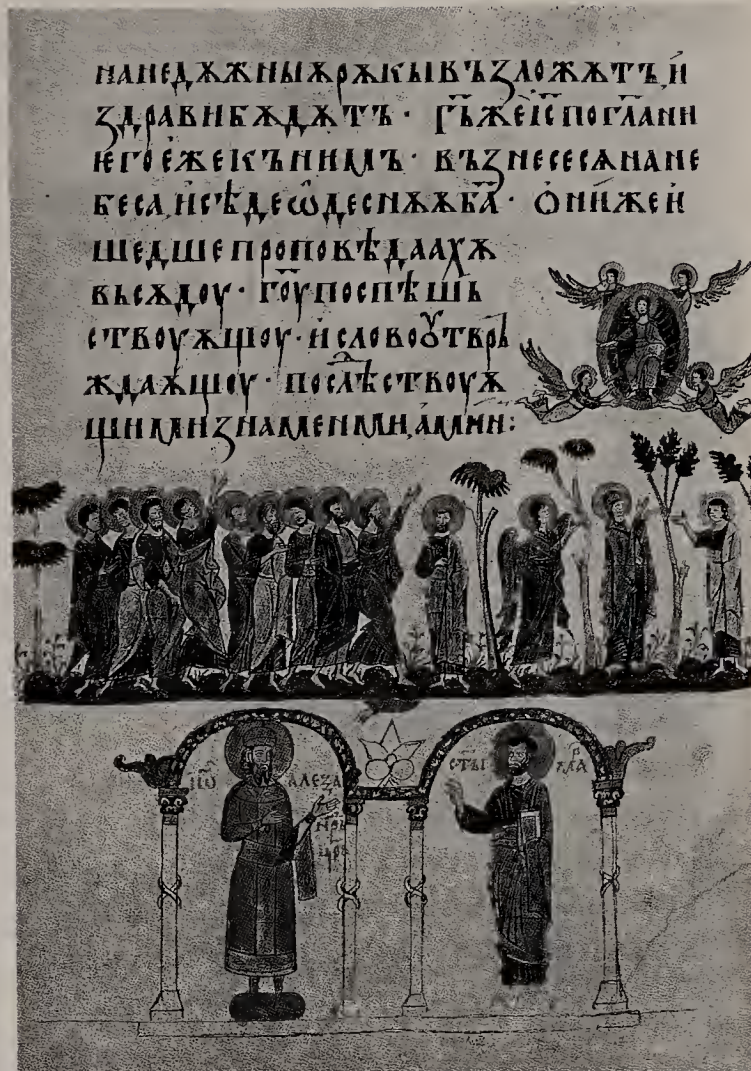 нанедѫжныѧрѫкывъзложѧтъ,и҆
здравибѫдѫтъ · г҃ьжеі҆с҃погл҃ани
и҆егое҆жекънимъ · възнесесѧнане
беса,и҆сѣдеѡ҆деснѫѫб҃а · ѻ҆ниже и҆
шедшепроповѣдаахѫ
вьсѫдоу · г҃оупоспѣшь
ствоуѫщоу · и҆словоꙋ҆тврь
ждаѫщоу · послⷣѣствоуѫ
щимизнаменми,а҆мин:
Іѡ҃ алеѯа
нрь
црь
ст҃ыи маⷬ